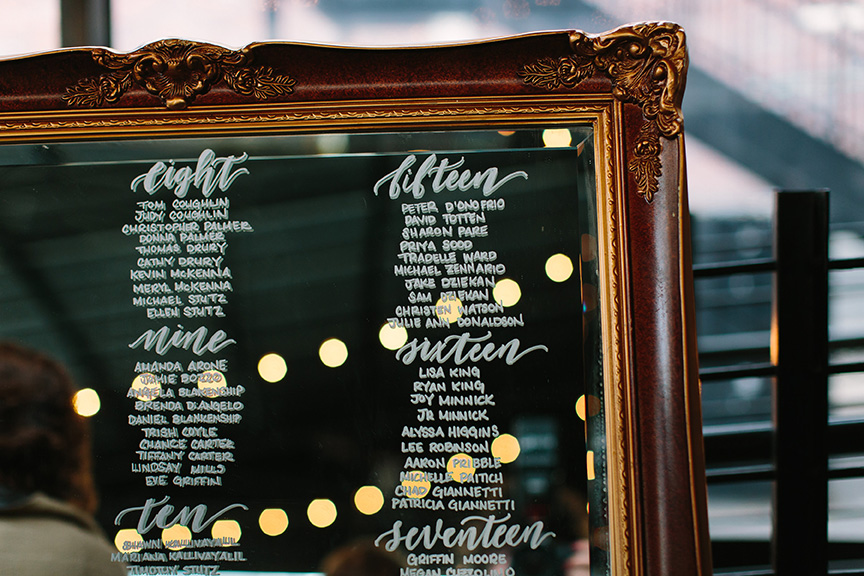 eight
TOM COUGHLIN
JUDY COUGHLIN
CHRISTOPHER PALMER
DONNA PALMER
THOMAS DRURY
CATHY DRURY
KEVIN MCKENNA
MERYL MCKENNA
MICHAEL STUTZ
ELLEN STUTZ
nine
AMANDA ARONE
JAMIE BOZZO
ANGELA BLAKENSHIP
BRENDA D'ANGELO
DANIEL BLANKENSHIP
TRISH COYLE
CHANCE CARTER
TIFFANY CARTER
LINDSAY MILLS
EVE GRIFFIN
ten
SHAWN
MARIANA KALLIVAYALIL
TIMOTHY STUTZ
fifteen
PETER D'ONOFRIO
DAVID TOTTEN
SHARON PARE
PRIYA SOOD
TRADELLE WARD
MICHAEL ZENNARIO
JAKE DZIEKAN
SAM DZIEKAN
CHRISTEN WATSON
JULIE ANN DONALDSON
sixteen
LISA KING
RYAN KING
JOY MINNICK
JR MINNICK
ALYSSA HIGGINS
LEE ROBINSON
AARON PRIBBLE
MICHELLE DAITICH
CHAD GIANNETTI
PATRICIA GIANNETTI
seventeen
GRIFFIN MOORE
MEGAN CUZZOLINO